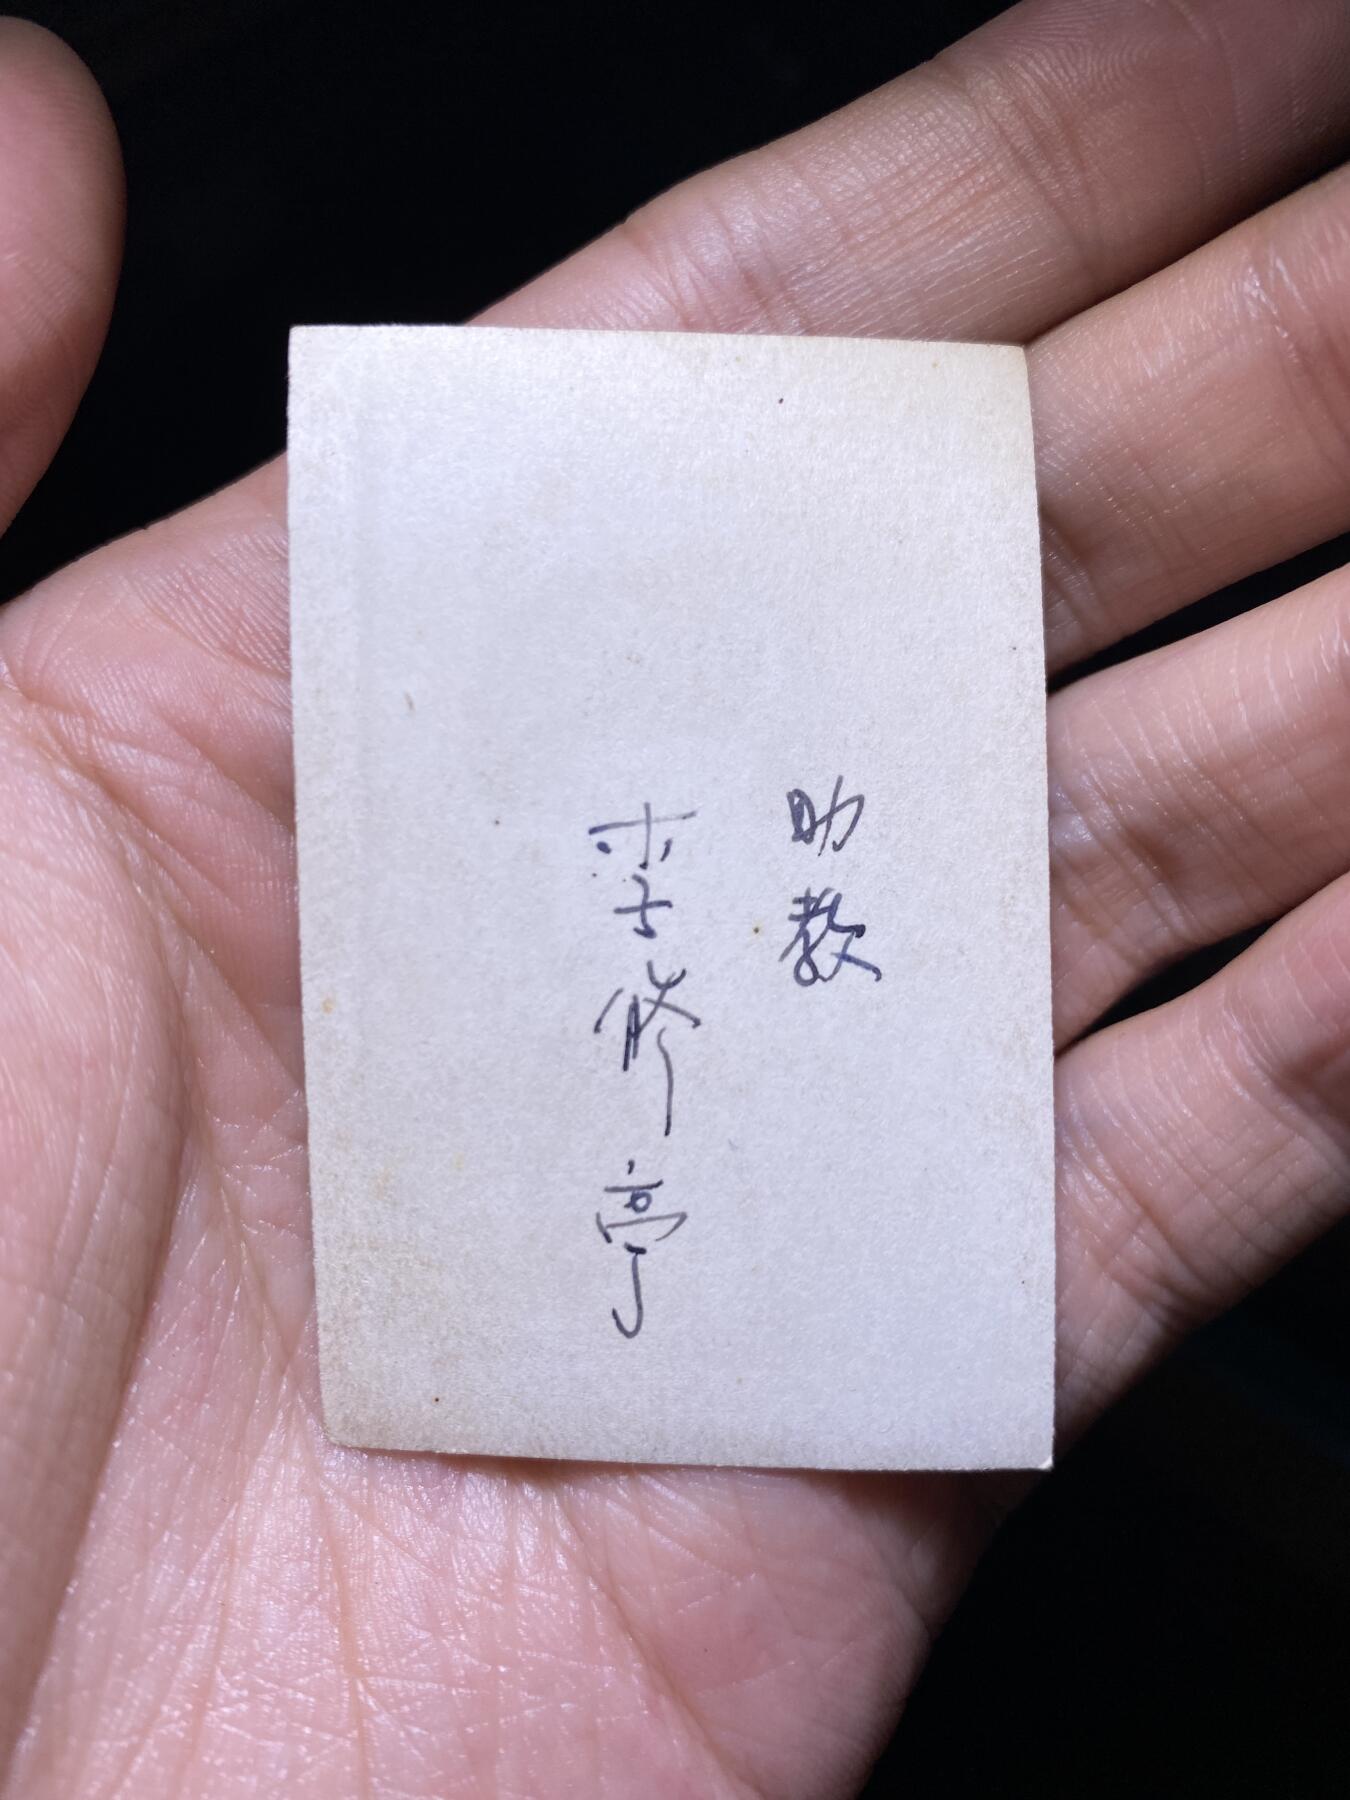 助教
李修亭